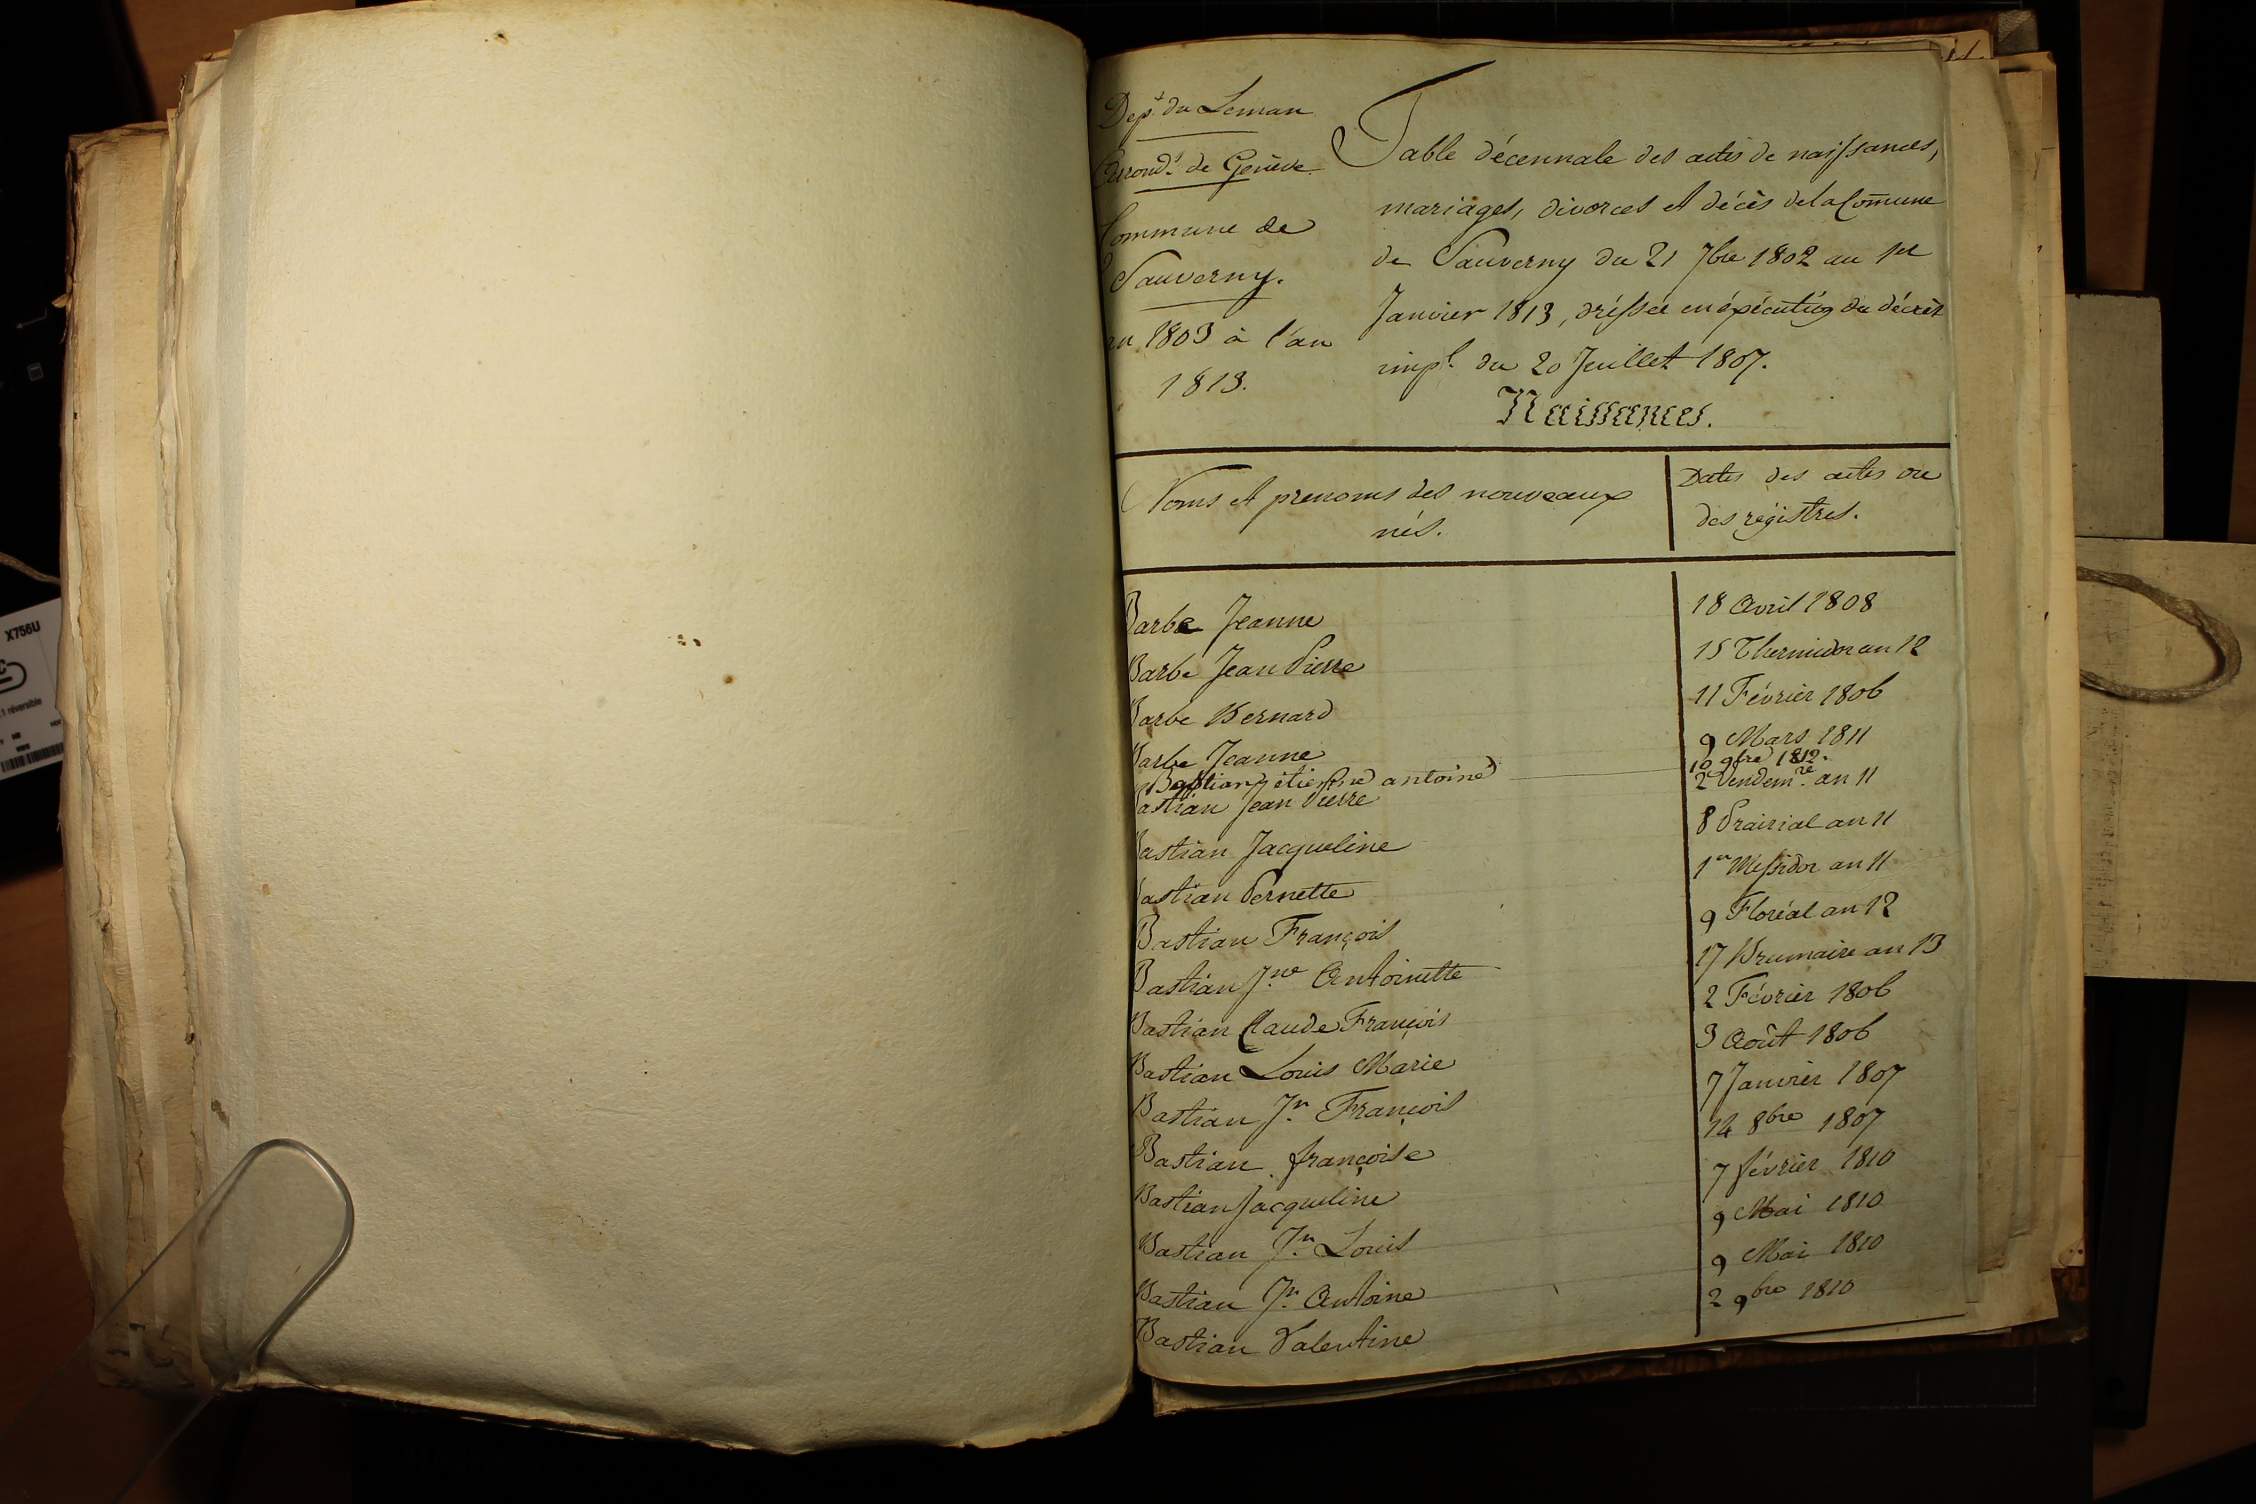 Dept. du Leman
Arrondt. de Genève.
Commune de
Sauverny.
an 1803 à l'an
1813.
Table décennale des actes de naissances,
mariages, divorces et décès de la Comune
de Sauverny du 21 7bre 1802 au 1er
Janvier 1813, dréssée en éxécution du décrèt
impl. du 20 Juillet 1807.
Naissances.
Noms et prenoms des nouveaux
nés.
Dates des actes ou
des régistres.
Barbe Jeanne 18 Avril 1808
Barbe Jean Pierre 15 Thermidor an 12
Barbe Bernard 11 Février 1806
Barbe Jeanne 9 Mars 1811
Bastian étienne antoine 10 9bre 1812.
Bastian Jean Pierre 2 Vendemre. an 11
Bastian Jacqueline 8 Prairial an 11
Bastian Pernette 1er Messidor an 11
Bastian François 9 Floréal an 12
Bastian Jne Antoinette 17 Brumaire an 13
Bastian Claude François 2 Février 1806
Bastian Louis Marie 3 Août 1806
Bastian Jn. François 7 Janvier 1807
Bastian françoise 14 8bre 1807
Bastian Jacqueline 7 février 1810
Bastian Jn. Louis 9 Mai 1810
Bastian Jn. Antoine 9 Mai 1810
Bastian Valentine 2 9bre 1810
X756U
1 réversible